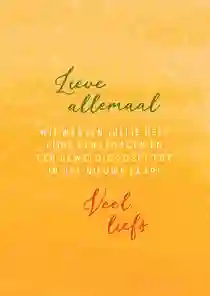 Lieve
allemaal
WIJ WENSEN JULLIE HELE
FIJNE KERSTDAGEN EN
EEN
IN HET NIEUWE JAAR!
Veel
liefs